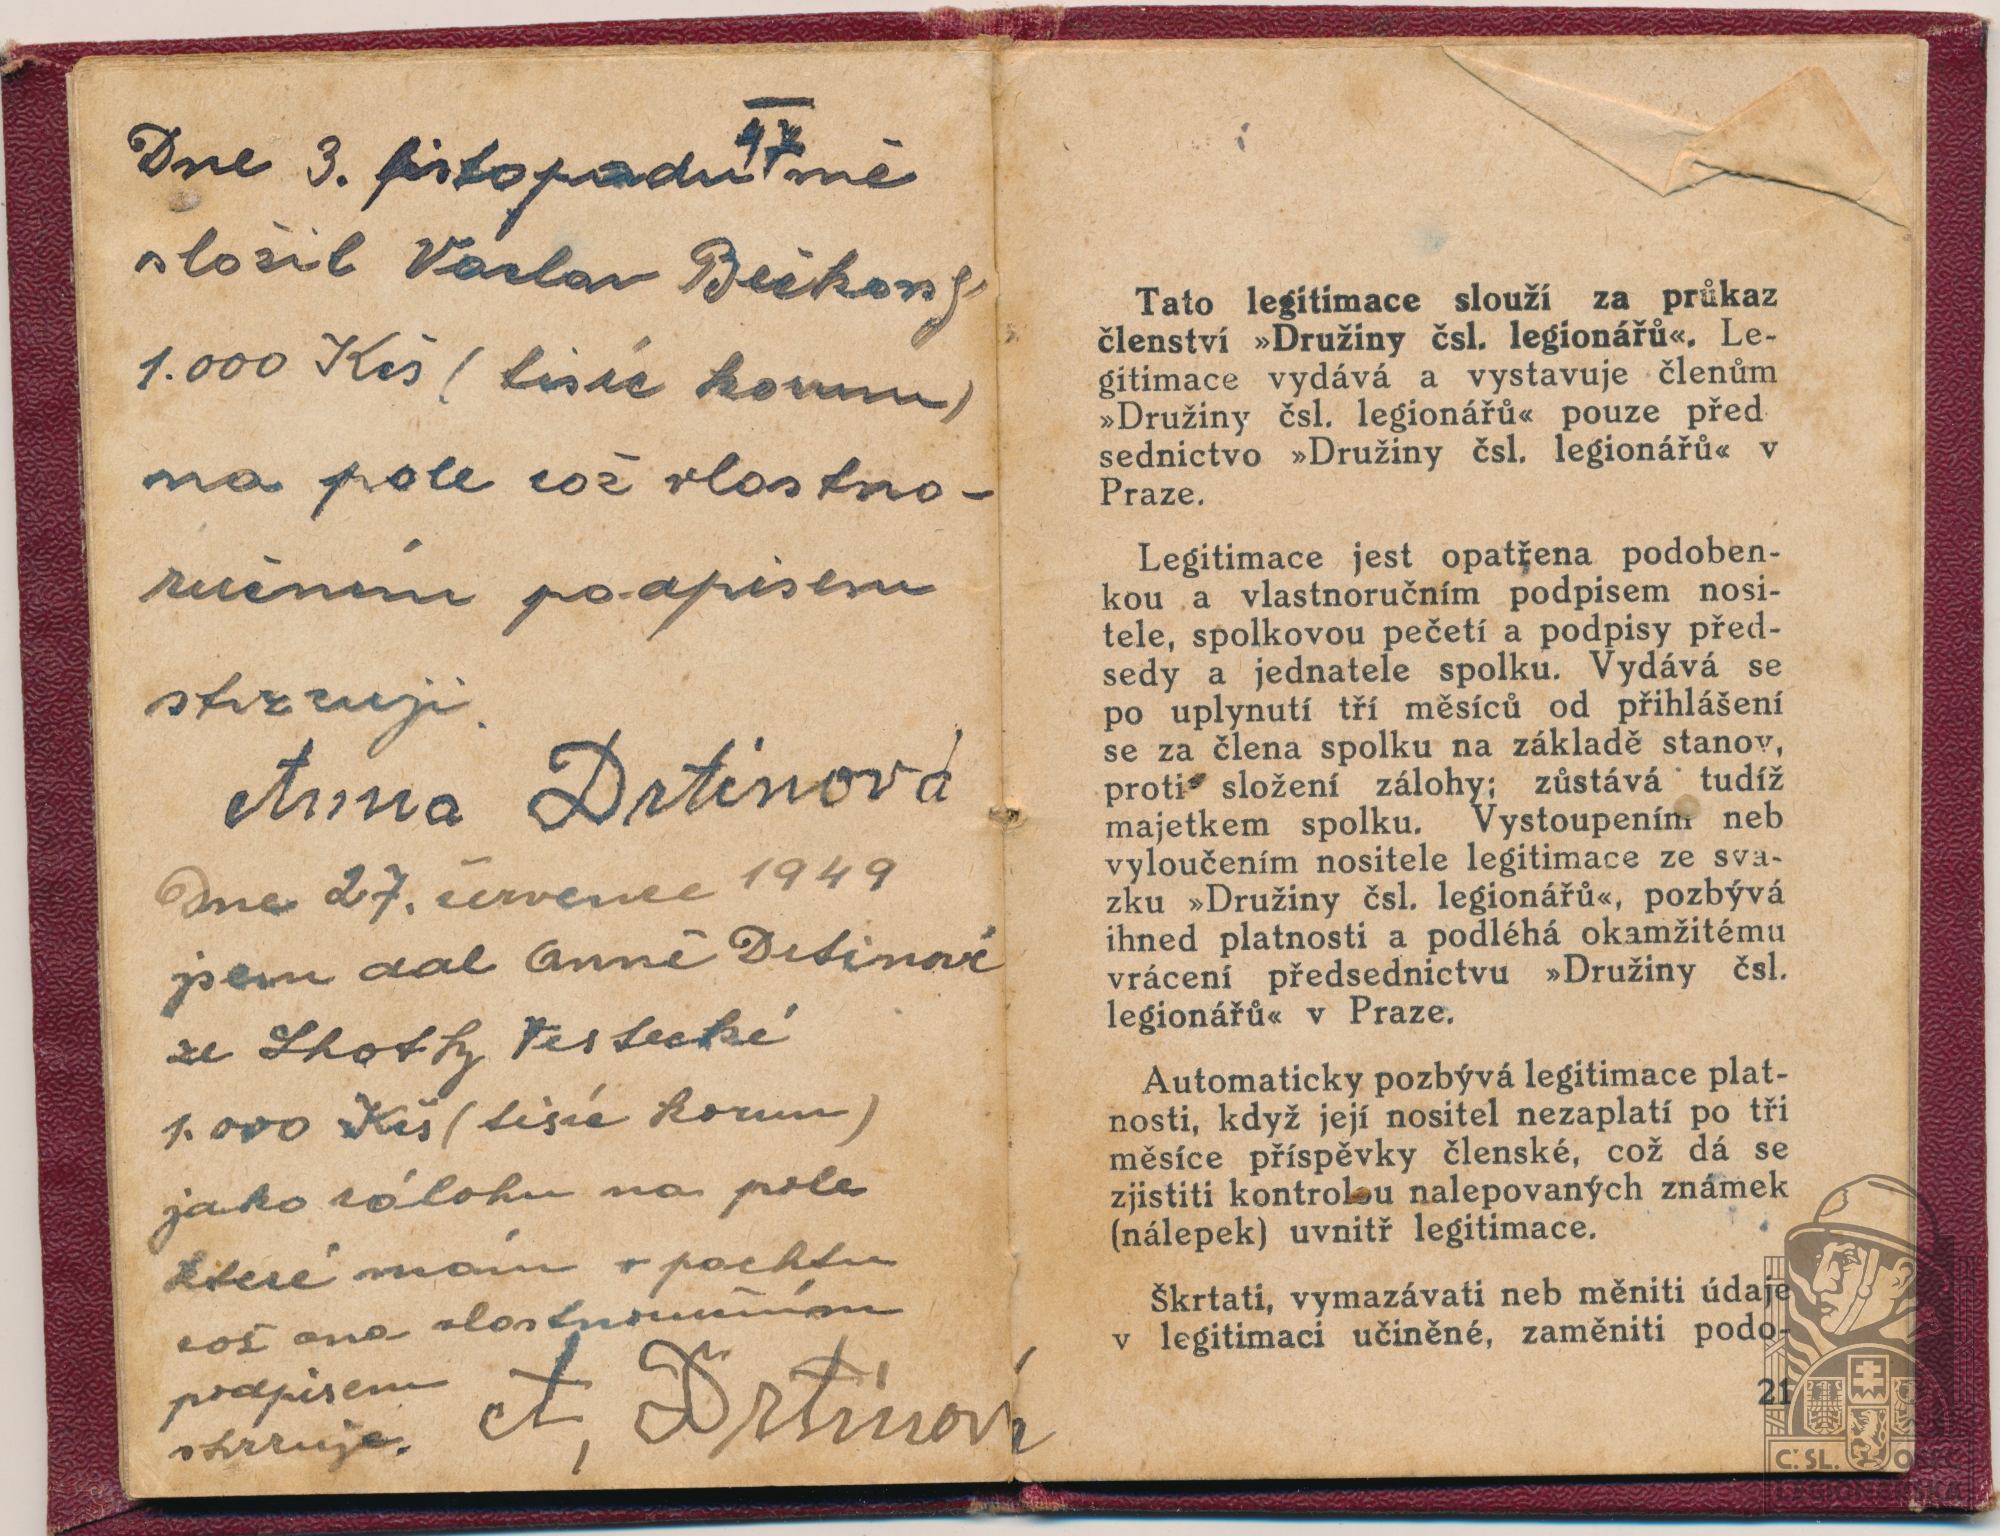 Dne 3. listopadu 47 mě
složil Václav Bečkovský
1.000 Kčs (tisíc korun)
na pole což vlastno-
ručním podpisem
stvrzuji.
Anna Drtinová
Dne 27. července 1949
jsem dal Anně Drtinové
ze Lhotky Vestecké
1.000 Kčs (tisíc korun)
jako zálohu na pole
které mám v pachtu
což ona vlastnoručním
podpisem
stvrzuje. A. Drtinová
Tato legitimace slouží za průkaz
členství »Družiny čsl. legionářů«. Le-
gitimace vydává a vystavuje členům
»Družiny čsl. legionářů« pouze před
sednictvo »Družiny čsl. legionářů« v
Praze.
Legitimace jest opatřena podoben-
kou a vlastnoručním podpisem nosi-
tele, spolkovou pečetí a podpisy před-
sedy a jednatele spolku. Vydává se
po uplynutí tří měsíců od přihlášení
se za člena spolku na základě stanov,
proti složení zálohy; zůstává tudíž
majetkem spolku. Vystoupením neb
vyloučením nositele legitimace ze sva-
zku »Družiny čsl. legionářů«, pozbývá
ihned platnosti a podléhá okamžitému
vrácení předsednictvu »Družiny čsl.
legionářů« v Praze.
Automaticky pozbývá legitimace plat-
nosti, když její nositel nezaplatí po tři
měsíce příspěvky členské, což dá se
zjistiti kontrolou nalepovaných známek
(nálepek) uvnitř legitimace.
Škrtati, vymazávati neb měniti údaje
v legitimaci učiněné, zaměniti podo-
21
Č. SL. OBEC
LEGIONÁŘSKÁ